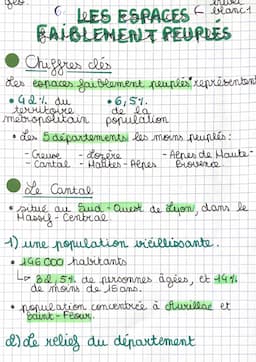 LES ESPACES
FAIBLEMENT PEUPLÉS
Chiffres clés
Les espaces faiblement peuplés représentent
• 42% du territoire métropolitain
• 6,5% de la population
• Les 5 départements les moins peuplés :
- Creuse - Lozère - Alpes de Haute-
- Cantal - Hautes-Alpes Provence
Le Cantal
• situé au Sud-Ouest de Lyon, dans le
Massif-Central
1) une population vieillissante.
• 146 000 habitants
↳ 32,5% de personnes âgées, et 14%
de moins de 15ans.
• population concentrée à Aurillac et
Saint-Flour.
2) Le relief du département